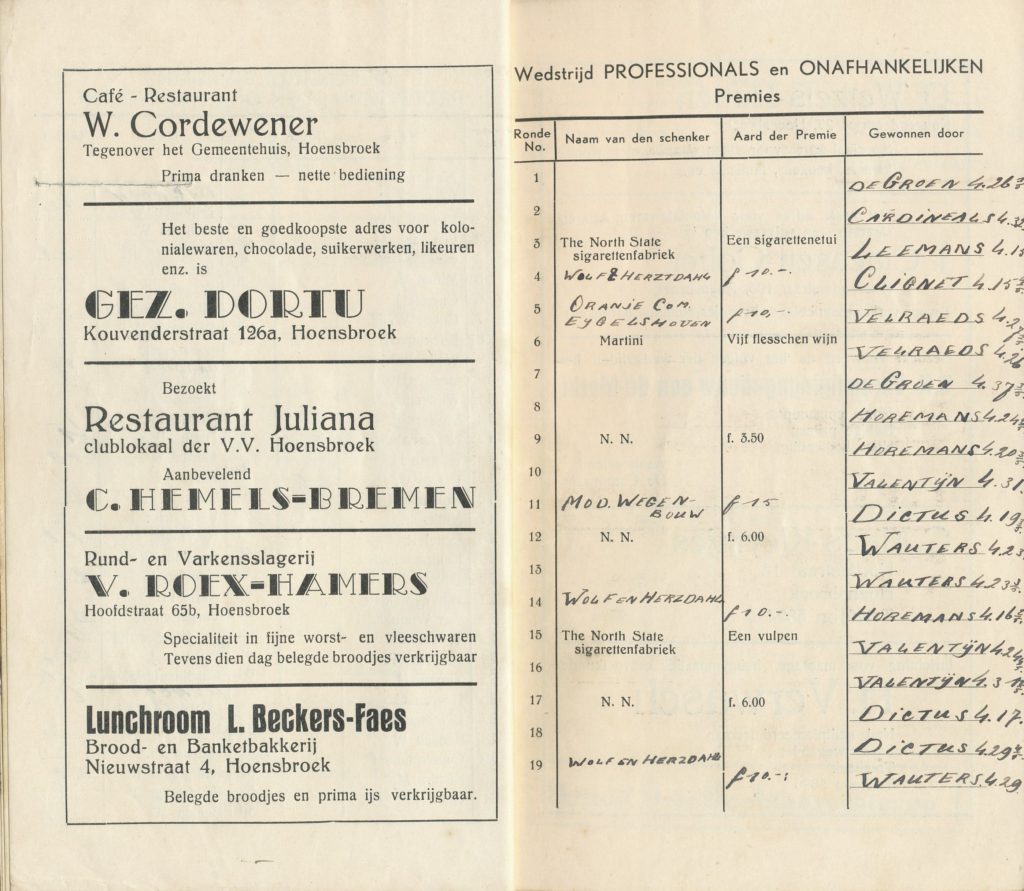 Café - Restaurant
W. Cordewener
Tegenover het Gemeentehuis, Hoensbroek
Prima dranken — nette bediening
Het beste en goedkoopste adres voor kolo-
nialewaren, chocolade, suikerwerken, likeuren
enz. is
GEZ. DORTU
Kouvenderstraat 126a, Hoensbroek
Bezoekt
Restaurant Juliana
clublokaal der V.V. Hoensbroek
Aanbevelend
C. HEMELS-BREMEN
Rund- en Varkensslagerij
V. ROEX-HAMERS
Hoofdstraat 65b, Hoensbroek
Specialiteit in fijne worst- en vleeschwaren
Tevens dien dag belegde broodjes verkrijgbaar
Lunchroom L. Beckers-Faes
Brood- en Banketbakkerij
Nieuwstraat 4, Hoensbroek
Belegde broodjes en prima ijs verkrijgbaar.
Wedstrijd PROFESSIONALS en ONAFHANKELIJKEN
Premies
Ronde No. Naam van den schenker Aard der Premie Gewonnen door
1 DE GROEN
2 CARDINEALS
3 The North State sigarettenfabriek Een sigarettenetui LEEMANS
4 WOLF & HERZTDAHL f 10.- CLIGNET
5 ORANJE COM. EYGELSHOVEN f 10.- VELRAEDS
6 Martini Vijf flesschen wijn VELRAEDS
7 DE GROEN
8 HOREMANS
9 N. N. f. 3.50 HOREMANS
10 VALENTIJN 4.31
11 MOD. WEGEN- BOUW f 15 DICTUS
12 N. N. f. 6.00 WAUTERS
13 WAUTERS
14 WOLF EN HERZDAHL f 10.- HOREMANS
15 The North State sigarettenfabriek Een vulpen VALENTIJN
16 VALENTIJN
17 N. N. f. 6.00 DICTUS 4.17
18 DICTUS
19 WOLF EN HERZDAHL f 10.- WAUTERS 4.29